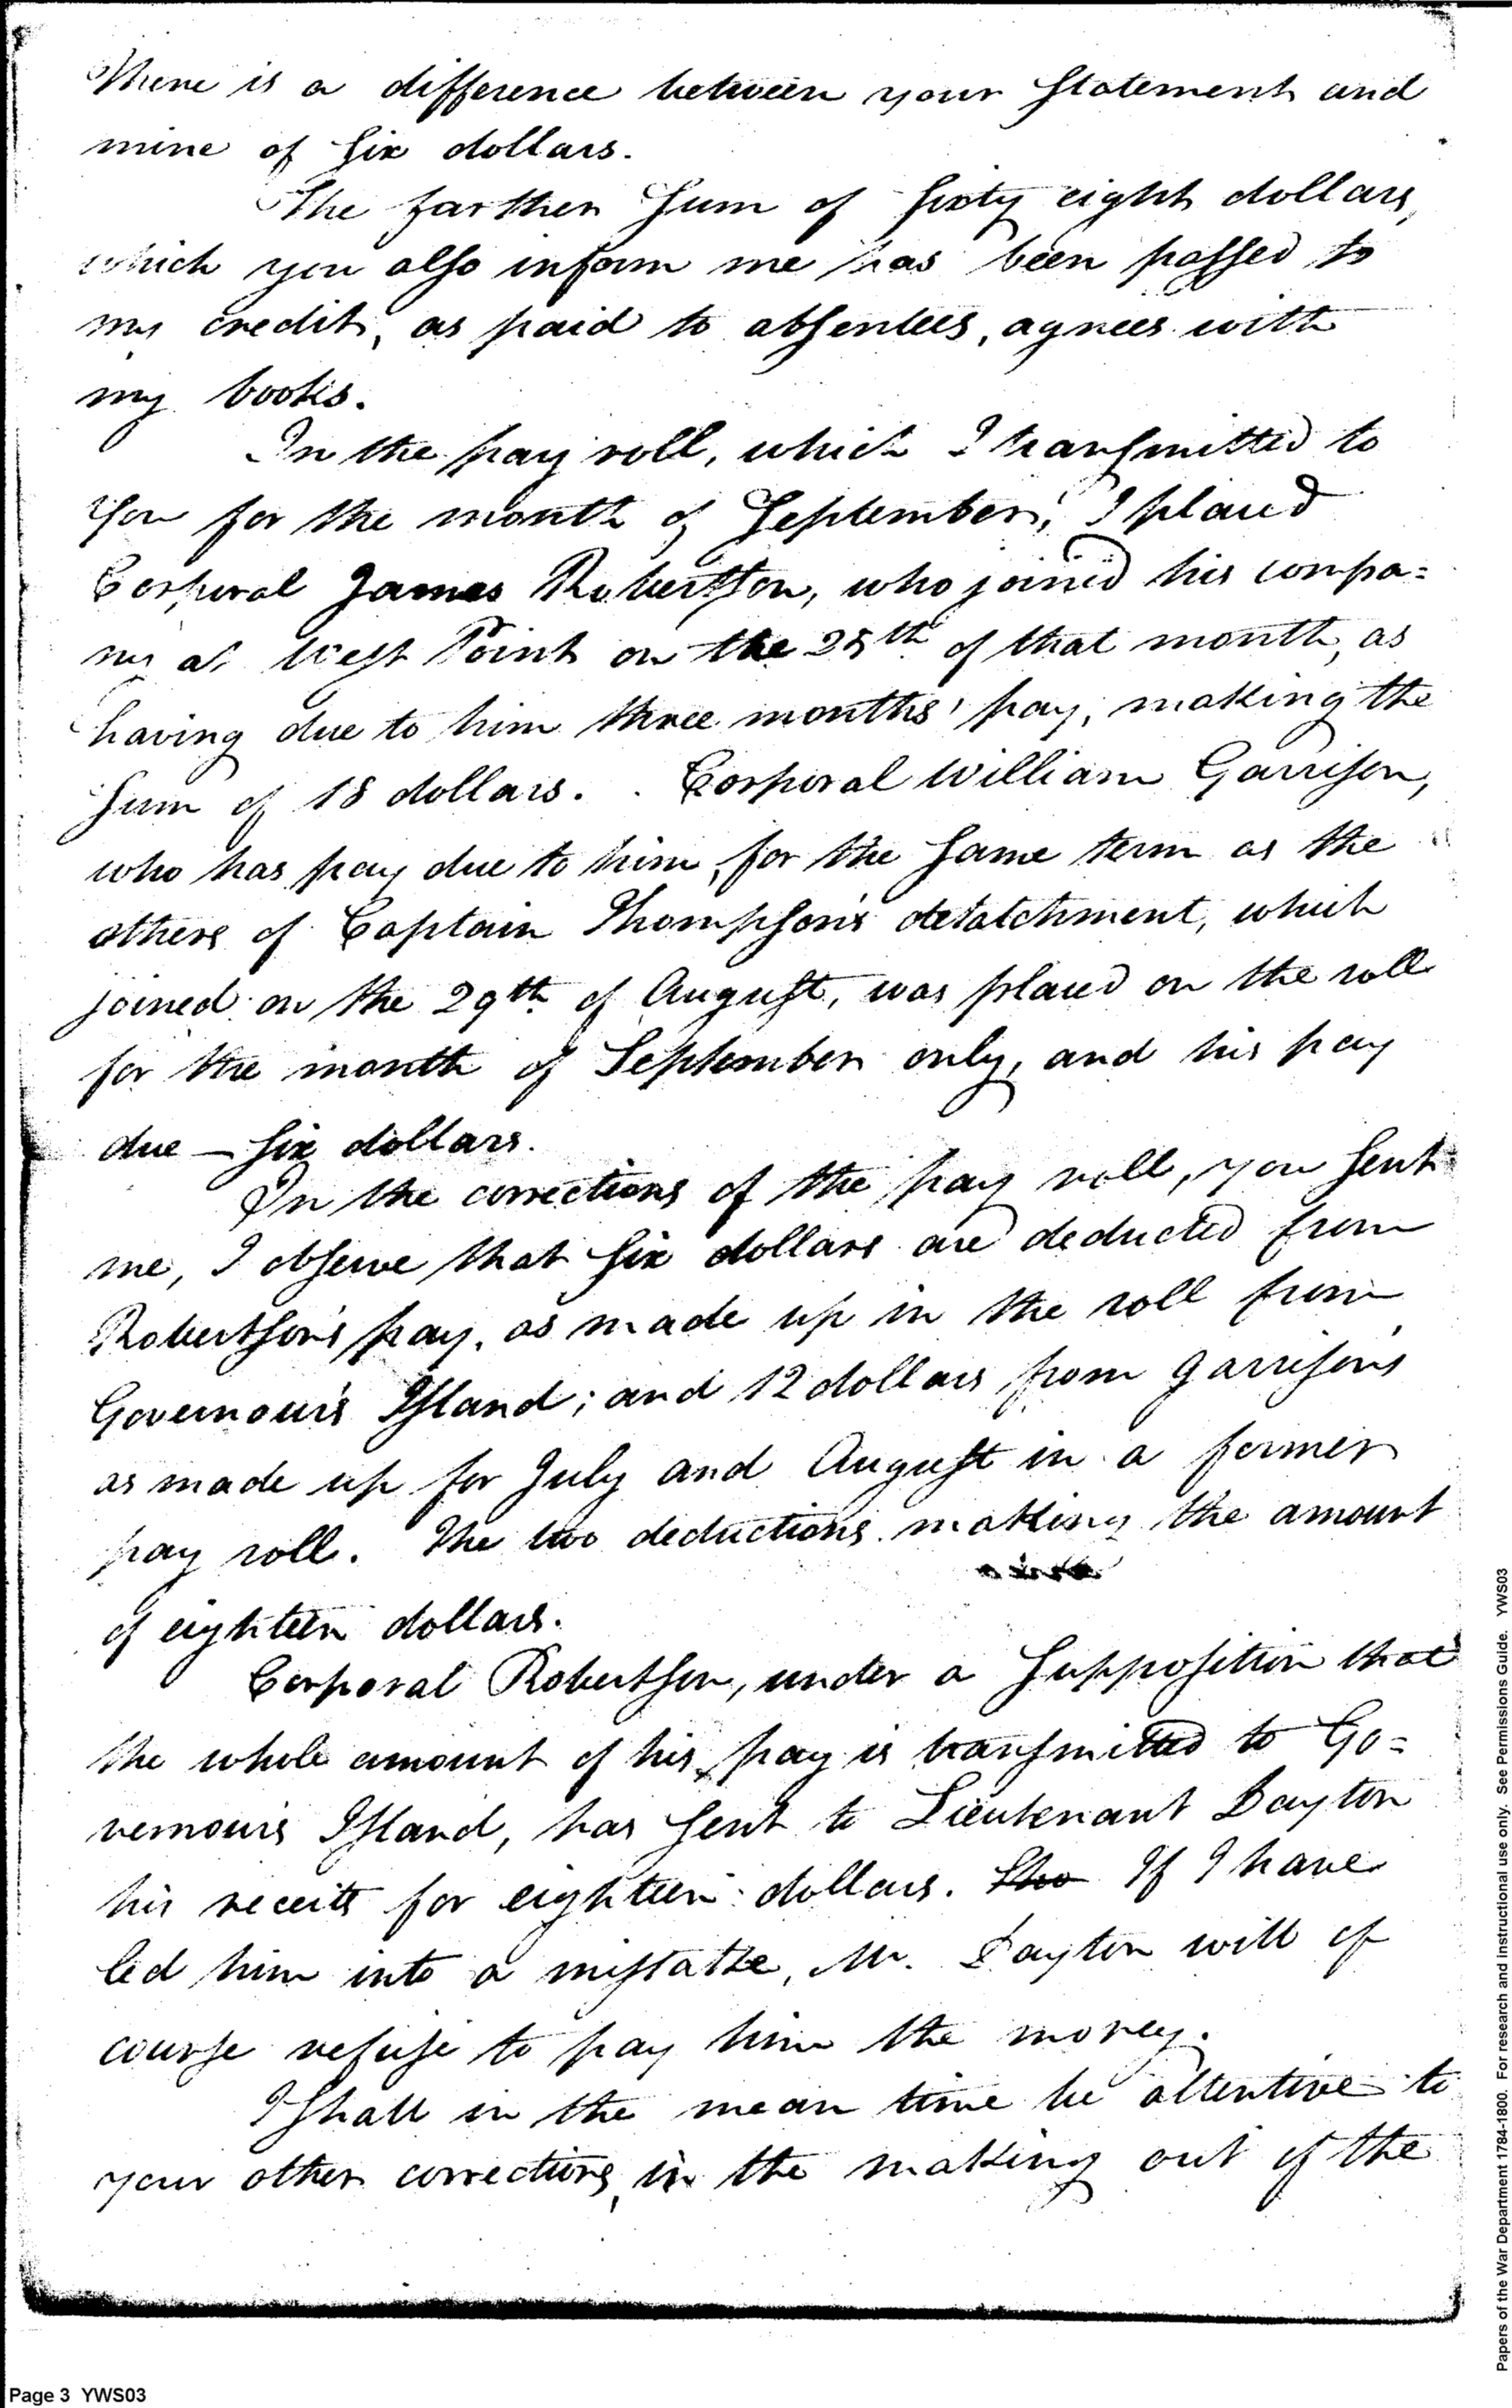 There is a difference between your statement and
mine of six dollars.
The farther sum of sixty eight dollars,
which you also inform me has been passed to
my credit, as paid to absentees, agrees with
my books.
In the pay roll, which I transmitted to
you for the month of September, I placed
Corporal James Robertson, who joined his compa=
ny at West Point on the 25th of that month, as
having due to him three months' pay, making the
sum of 18 dollars. Corporal William Garrison,
who has pay due to him, for the same term as the
others of Captain Thompson's detatchment, which
joined on the 29th of August, was placed on the roll
for the month of September only, and his pay
due — six dollars.
In the corrections of the pay roll, you sent
me, I observe that six dollars are deducted from
Robertson's pay, as made up in the roll from
Governour's Island; and 12 dollars from Garrison's
as made up for July and August in a former
pay roll. The two deductions making the amount
of eighteen dollars.
Corporal Robertson, under a supposition that
the whole amount of his pay is transmitted to Go=
vernour's Island, has sent to Lieutenant Dayton
his receits for eighteen dollars. Sho If I have
led him into a mistake, Mr. Dayton will of
course refuse to pay him the money.
I shall in the mean time be attentive to
your other corrections, in the making out of the
Page 3 YWS03
Papers of the War Department 1784-1800. For research and instructional use only. See Permissions Guide. YWS03